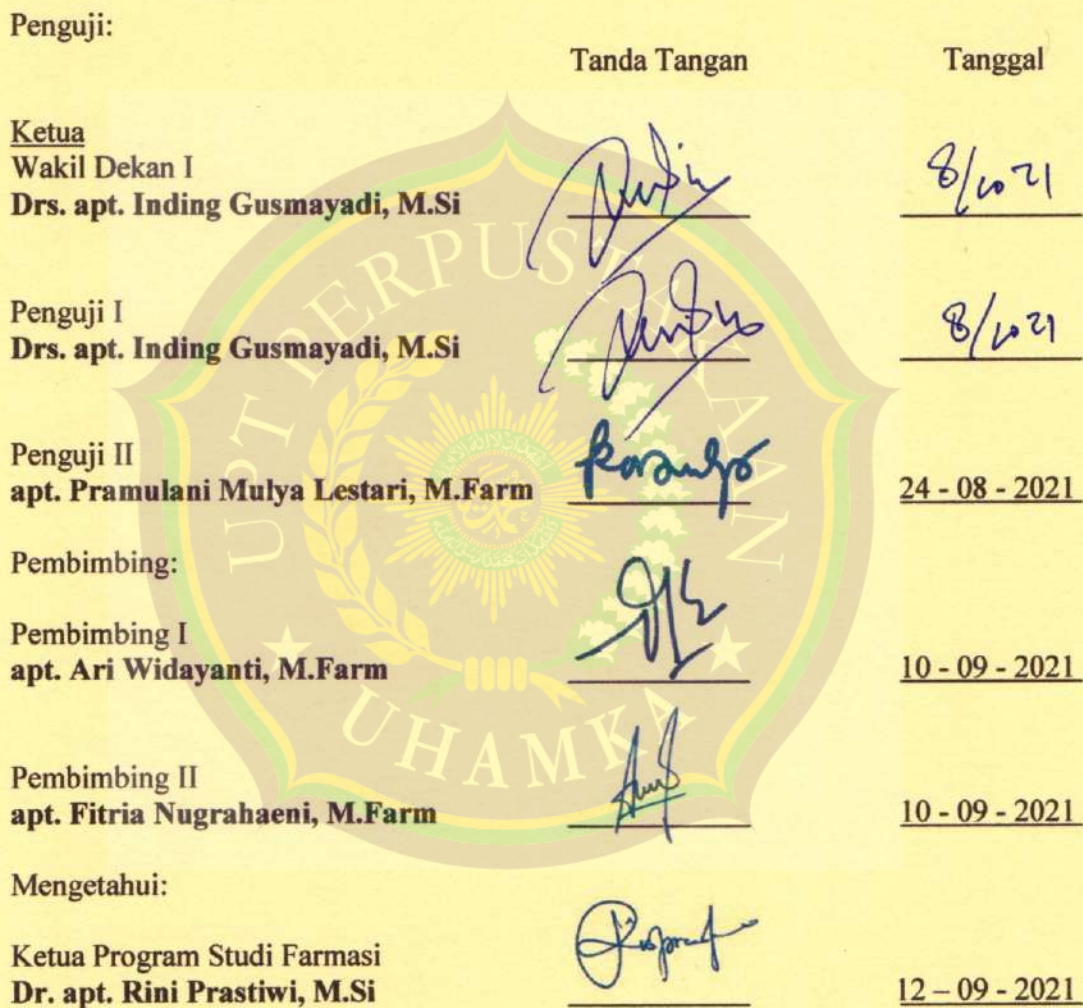 Penguji:
Tanda Tangan Tanggal
Ketua
Wakil Dekan I
Drs. apt. Inding Gusmayadi, M.Si
8/10 21
Penguji I
Drs. apt. Inding Gusmayadi, M.Si
8/10 21
Penguji II
apt. Pramulani Mulya Lestari, M.Farm 24 - 08 - 2021
Pembimbing:
Pembimbing I
apt. Ari Widayanti, M.Farm 10 - 09 - 2021
Pembimbing II
apt. Fitria Nugrahaeni, M.Farm 10 - 09 - 2021
Mengetahui:
Ketua Program Studi Farmasi
Dr. apt. Rini Prastiwi, M.Si 12 – 09 - 2021
UPT PERPUSTAKAAN
UHAMKA